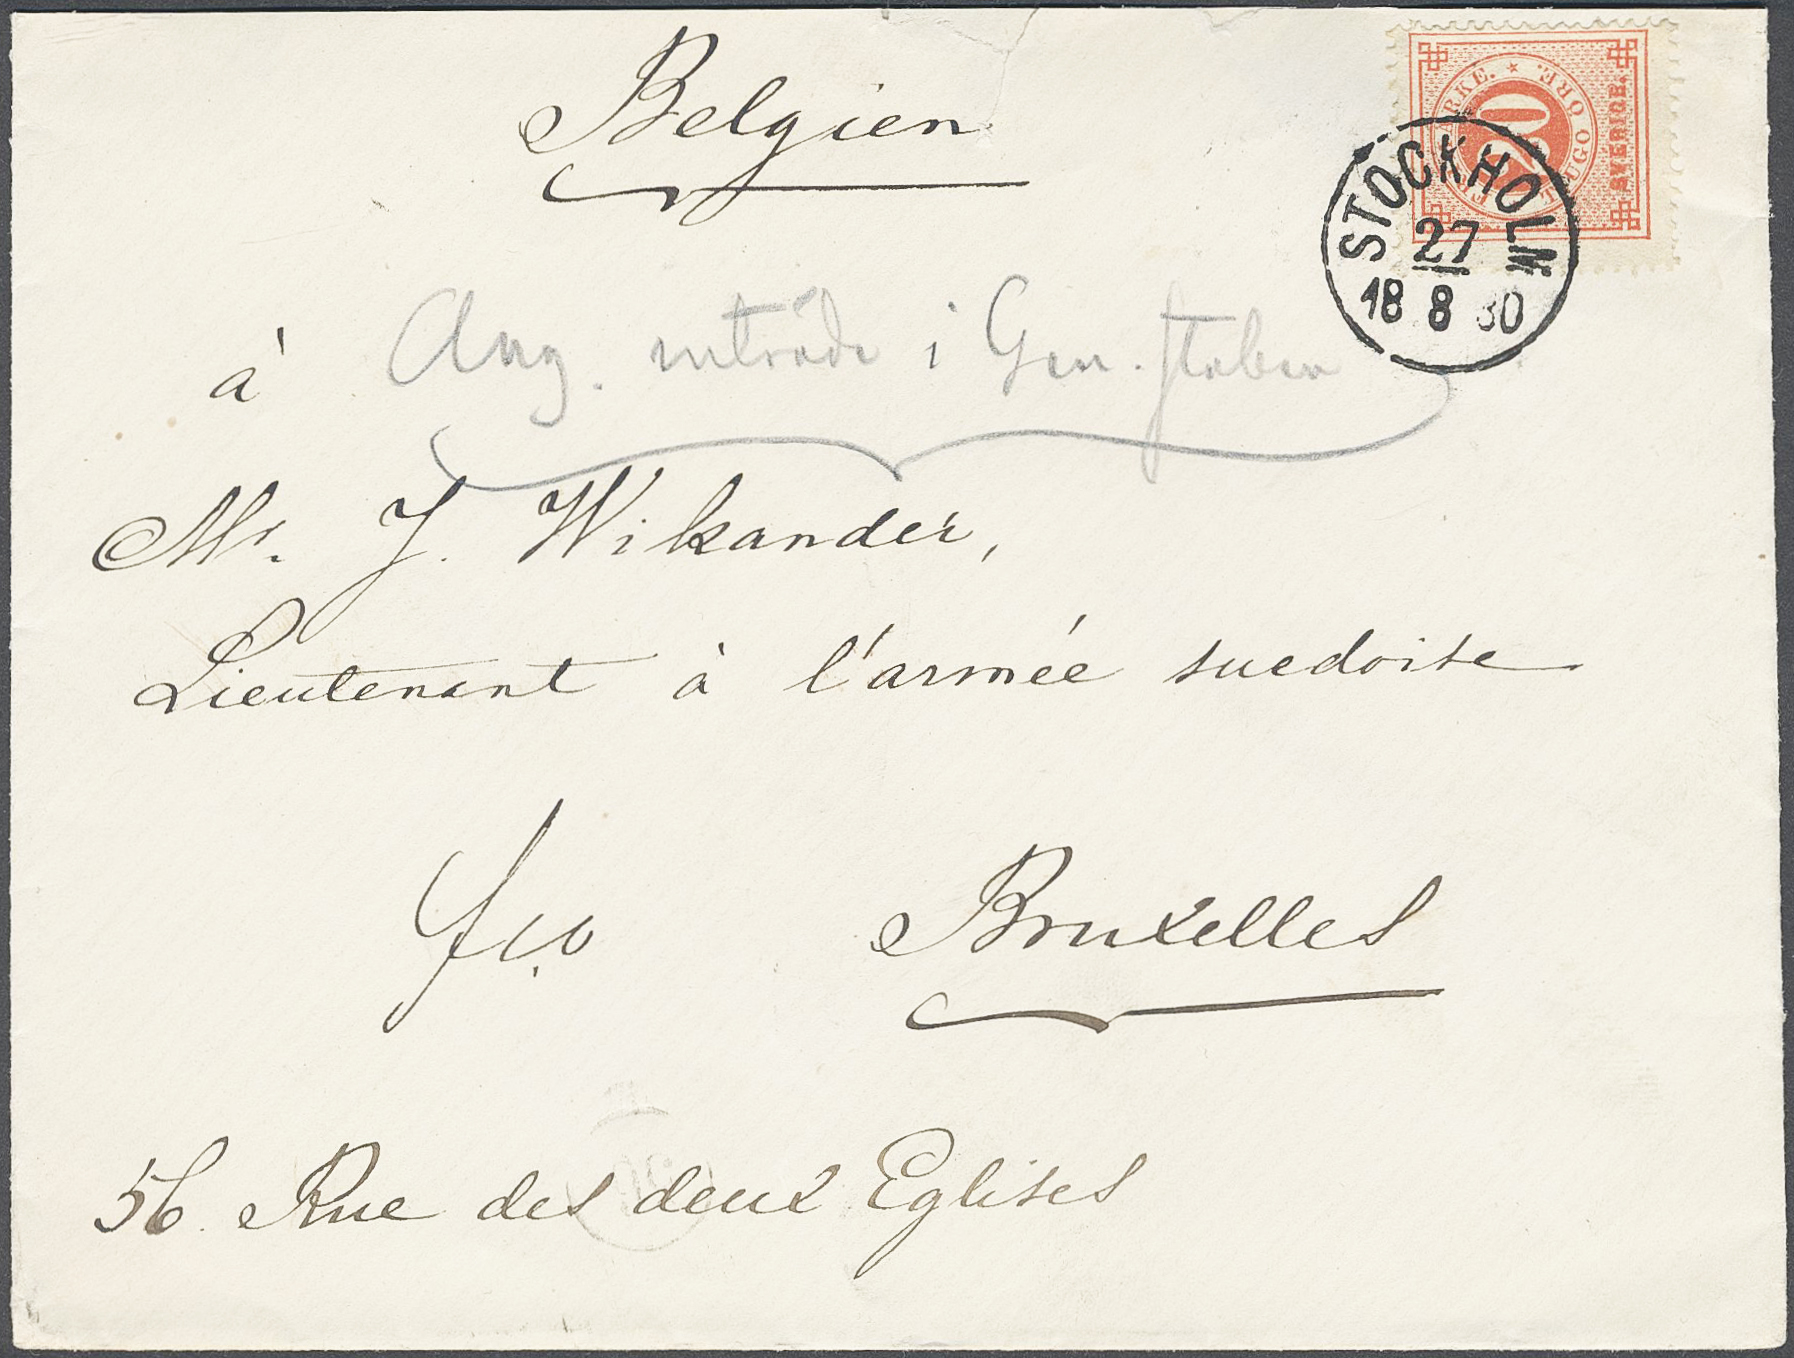 Belgien
FRIMÄRKE. * TJUGO ÖRE.
20
SVERIGE.
STOCKHOLM
27
18 8 80
à
Ang. inträde i Gen. staben
Mr. J. Wikander,
Lieutenant à l'armée suedoise
fco Bruxelles
56. Rue des deux Eglises